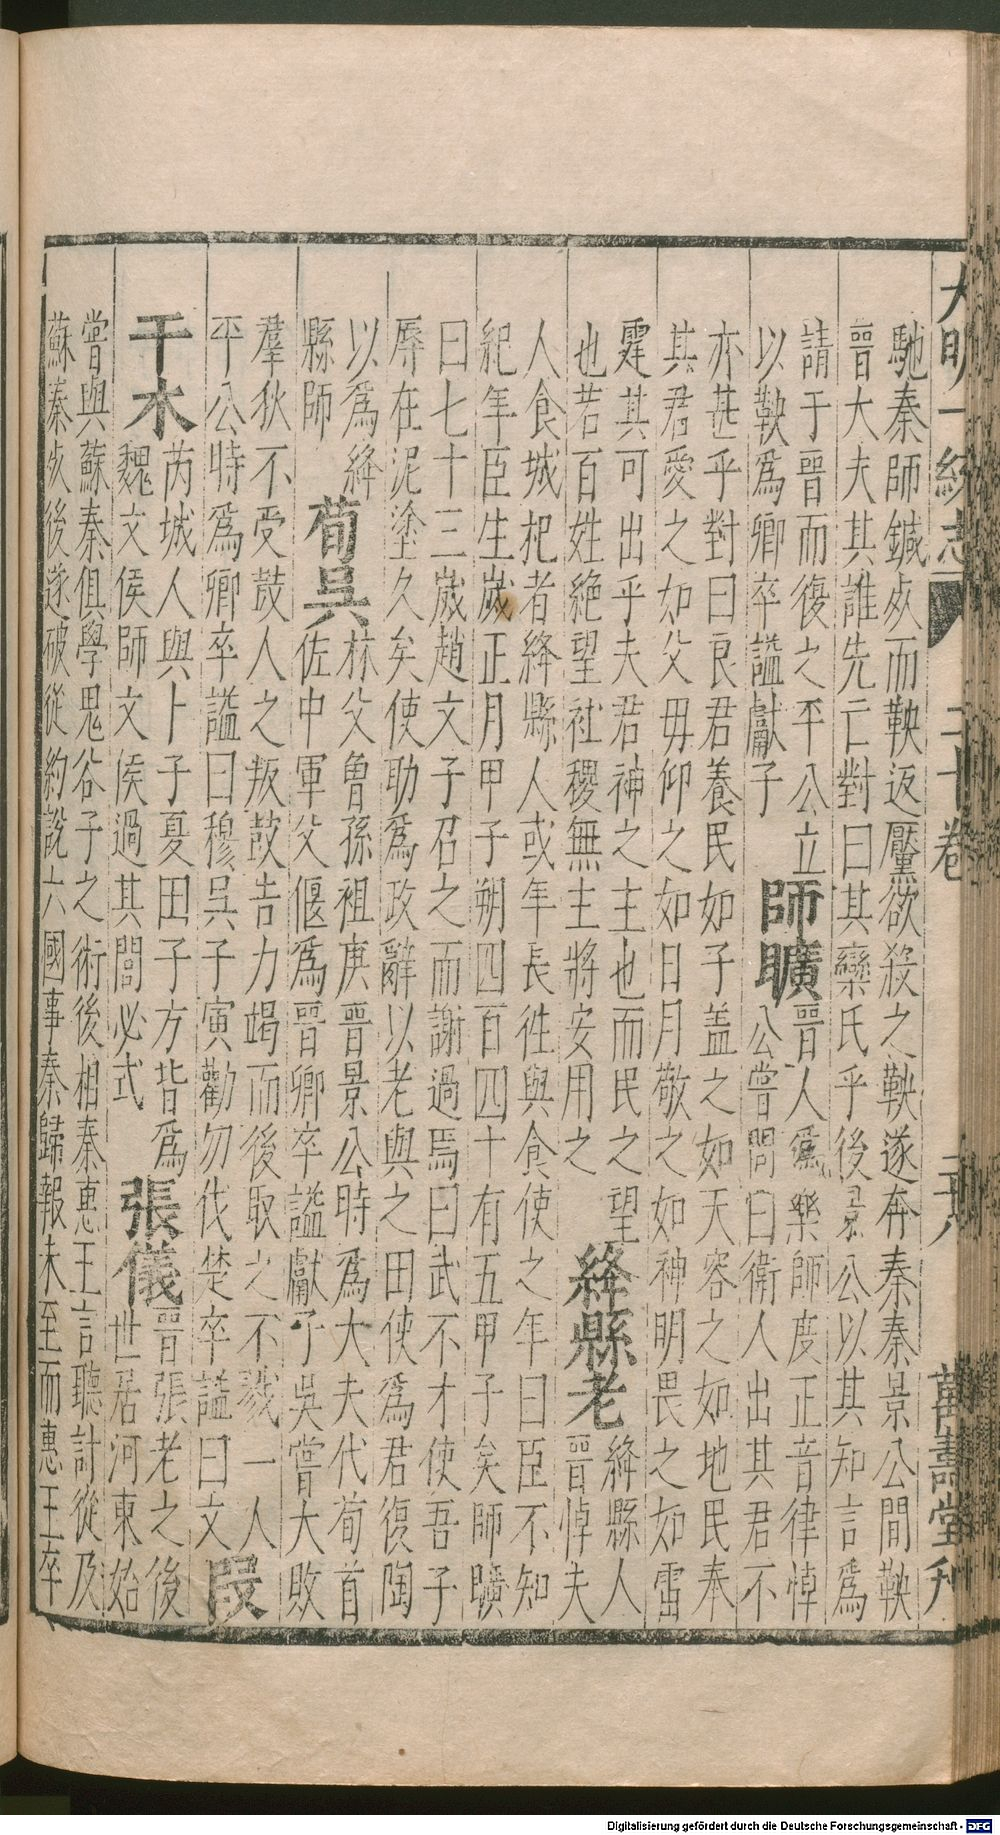 大明一統志 二十卷 萬壽堂刊
馳秦師鍼死而鞅返黶欲殺之鞅遂奔秦秦景公問鞅
晉大夫其誰先亡對曰其欒氏乎後景公以其知言爲
請于晉而復之平公立
以鞅爲卿卒謚獻子
師曠
晉人爲樂師度正音律悼
公嘗問曰衛人出其君不
亦甚乎對曰良君養民如子盖之如天容之如地民奉
其君愛之如父毋仰之如日月敬之如神明畏之如雷
霆其可出乎夫君神之主也而民之望
也若百姓絶望社稷無主將安用之
絳縣老
絳縣人
晉悼夫
人食城杞者絳縣人或年長徃與食使之年曰臣不知
紀年臣生嵗正月甲子朔四百四十有五甲子矣師曠
曰七十三嵗趙文子召之而謝過焉曰武不才使吾子
辱在泥塗久矣使助爲政辭以老與之田使爲君復陶
以爲絳
縣師
荀吳
林父魯孫祖庚晉景公時爲大夫代荀首
佐中軍父偃爲晉卿卒謚獻子吳嘗大敗
羣狄不受鼓人之叛鼓告力竭而後取之不戮一人
平公時爲卿卒謚曰穆吳子寅勸勿伐楚卒謚曰文
段
干木
芮城人與卜子夏田子方皆爲
魏文侯師文侯過其閭必式
張儀
晉張老之後
世居河東始
嘗與蘇秦俱學鬼谷子之術後相秦惠王言聽計從及
蘇秦死後遂破從約說六國事秦歸報未至而惠王卒
Digitalisierung gefördert durch die Deutsche Forschungsgemeinschaft - DFG